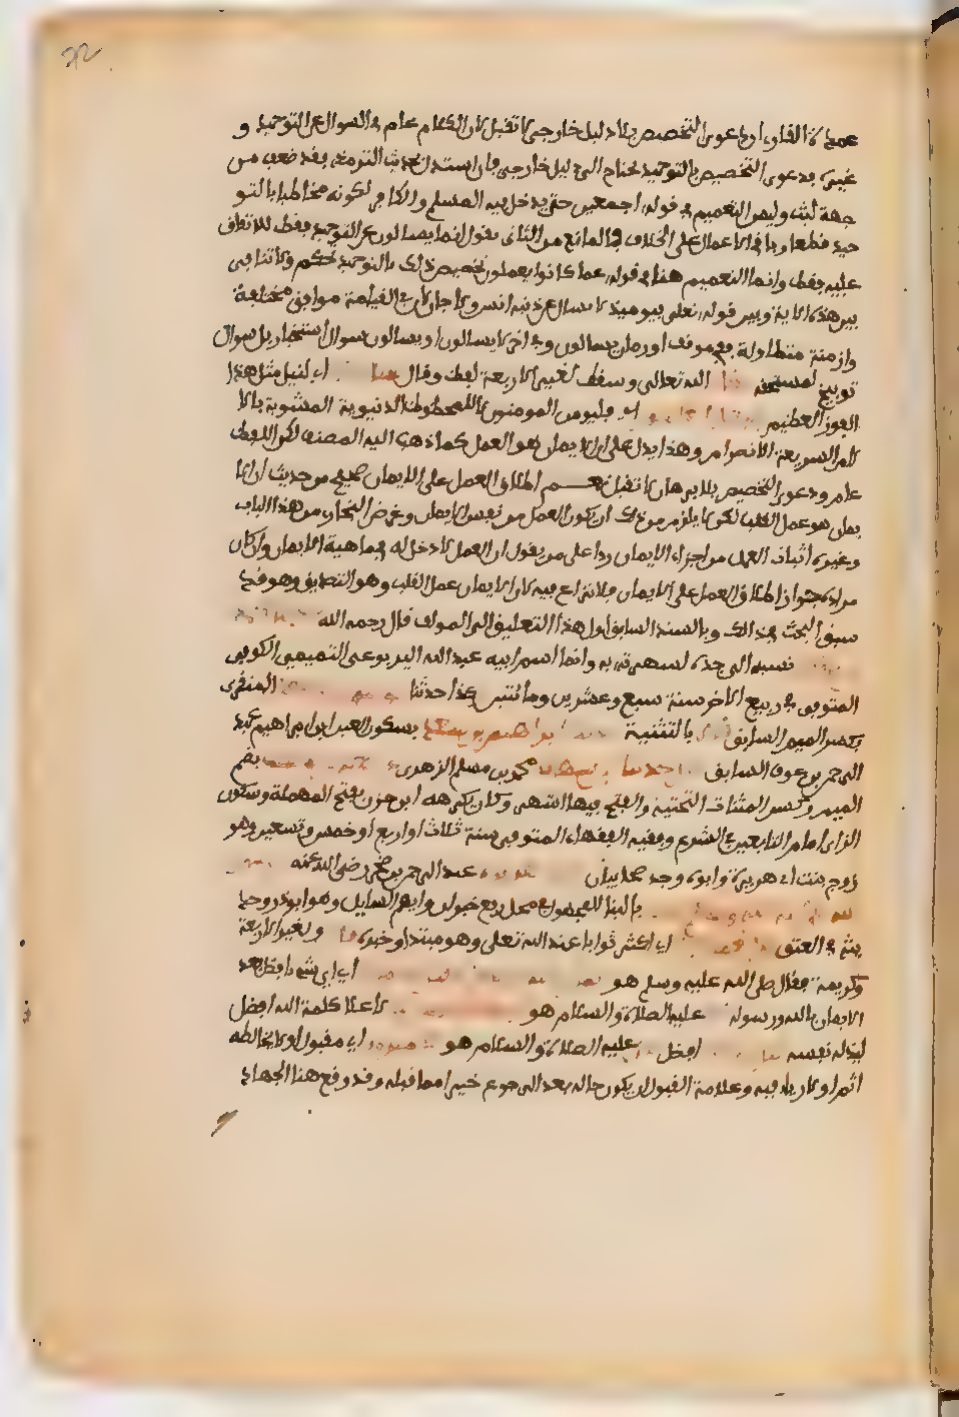 عمدة القارء ان دعوى التخصيص بلا دليل خارجي لا تقبل لان الكلام عام في السوال عن التوحيد و
غيره ودعوى التخصيص بالتوحيد تحتاج الى دليل خارجي فان استدل بحديث الترمذي فقد ضعف من
جهة ليث وليس التعميم في قوله اجمعين حتى يدخل فيه المسلم والكافر لكونه مخاطبا بالتو
حيد قطعا وباقي الاعمال على الخلاف فالمانع من الثاني يقول انما يسالون عن التوحيد فقط للاتفاق
عليه فقط وانما التعميم هنا في قوله عما كانوا يعملون فتخصيص ذلك بالتوحيد تحكم ولا تنافي
بين هذه الاية وبين قوله تعلى فيوميذ لا يسال عن ذنبه انس ولا جان لان في القيامة مواقف مختلفة
وازمنة متطاولة ففي موقف او زمان يسالون وفي اخر لا يسالون او يسالون سوال استخبار بل سوال
توبيخ لمستحقه الله تعالى وسقط لغير الاربعة لفظ وقال اي لنيل مثل هذا
الفوز العظيم اي فليومن المومنون لا للحظوظ الدنيوية المشوبة بالا
لام السريعة الانصرام وهذا يدل على ان الايمان هو العمل كما ذهب اليه المصنف لكن اللفظ
عام ودعوى التخصيص بلا برهان لا تقبل نعم اطلاق العمل على الايمان صحيح من حديث ان الا
يمان هو عمل القلب لكن لا يلزم من ذلك ان يكون العمل من نفس الايمان وغرض البخاري من هذا الباب
وغيره اثبات العمل من اجزاء الايمان ردا على من يقول ان العمل لا دخل له في ماهية الايمان وان كان
مراده جواز اطلاق العمل على الايمان فلا نزاع فيه لان الايمان عمل القلب وهو التصديق وهو قد
سبق البحث في ذالك وبالسند السابق اول هذا التعليق الى المولف قال رحمه الله
نسبه الى جده لشهرته به وانما اسم ابيه عبد الله اليربوعي التميمي الكوفي
المتوفى في ربيع الاخر سنة سبع وعشرين ومائتين حدثنا المنقري
بكسر الميم السابق بالتثنية ابراهيم بن سعد بسكون العين ابن ابراهيم بن عبد
الرحمن بن عوف السابق محمد بن مسلم الزهري بضم
الميم وكسر المثناة التحتية والفتح فيها اشهر وكان يكره ابن حزن بفتح المهملة وسكون
الزاي امام التابعين في الشرع وفقيه الفقهاء المتوفى سنة ثلاث او اربع او خمس وتسعين وهو
زوج بنت ابي هريرة وابوه وجده صحابيان عبد الرحمن بن صخر رضي الله عنه
بالبنا للمجهول في محل رفع خبر ان وابهم السايل وهو ابوذر وحديـ
ثه في العتق اي اكثر ثوابا عند الله تعلى وهو مبتدا وخبره ولغير الاربعة
وكريمة فقال صلى الله عليه وسلم هو اي اي شي افضل بعد
الايمان بالله ورسوله عليه الصلاة والسلام هو لاعلا كلمة الله افضل
لبذله نفسه افضل عليه الصلاة والسلام هو اي مقبول او لا يخالطه
اثم او لا رياء فيه وعلامة القبول ان يكون حاله بعد الرجوع خيرا مما قبله وقد وقع هنا الجهاد